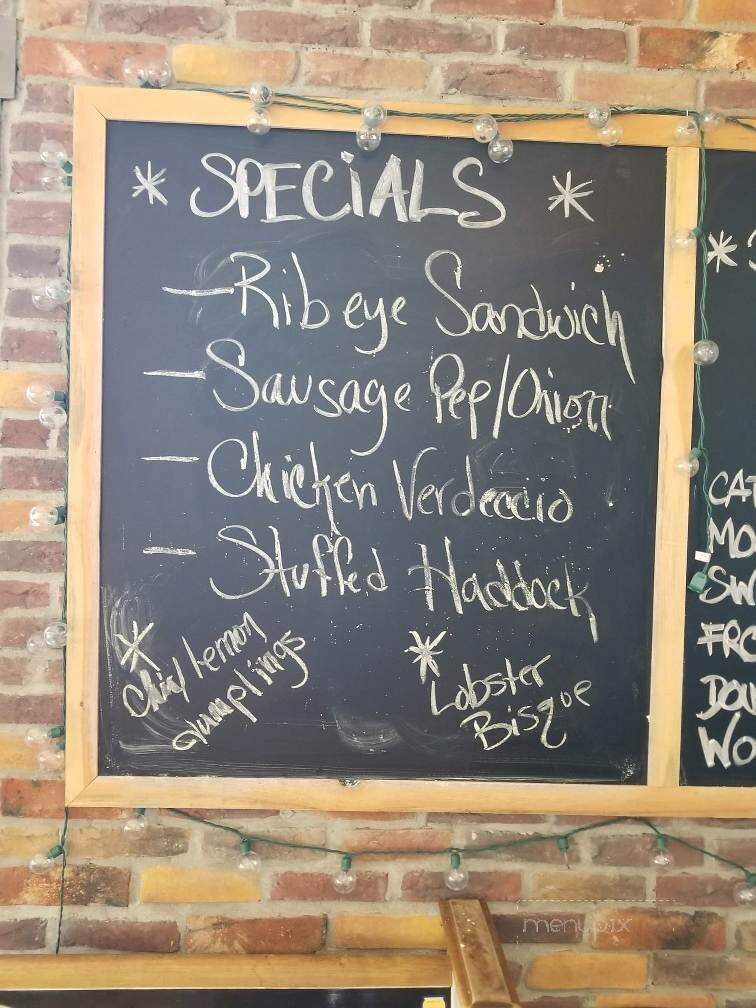 * SPECIALS *
- Rib eye Sandwich
- Sausage Pep/Onion
- Chicken Verdeccio
- Stuffed Haddock
* Lemon
dumplings
* Lobster
Bisque
*
CAT
MO
SW
FRO
DOU
WO
menupix